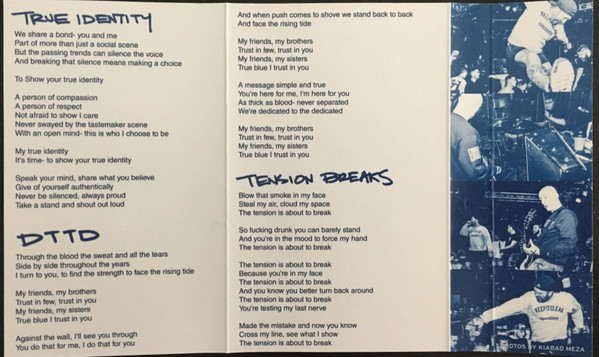 TRUE IDENTITY
We share a bond- you and me
Part of more than just a social scene
But the passing trends can silence the voice
And breaking that silence means making a choice
To Show your true identity
A person of compassion
A person of respect
Not afraid to show I care
Never swayed by the tastemaker scene
With an open mind- this is who I choose to be
My true identity
It's time- to show your true identity
Speak your mind, share what you believe
Give of yourself authentically
Never be silenced, always proud
Take a stand and shout out loud
DTTD
Through the blood the sweat and all the tears
Side by side throughout the years
I turn to you, to find the strength to face the rising tide
My friends, my brothers
Trust in few, trust in you
My friends, my sisters
True blue I trust in you
Against the wall, I'll see you through
You do that for me, I do that for you
And when push comes to shove we stand back to back
And face the rising tide
My friends, my brothers
Trust in few, trust in you
My friends, my sisters
True blue I trust in you
A message simple and true
You're here for me, I'm here for you
As thick as blood- never separated
We're dedicated to the dedicated
My friends, my brothers
Trust in few, trust in you
My friends, my sisters
True blue I trust in you
TENSION BREAKS
Blow that smoke in my face
Steal my air, cloud my space
The tension is about to break
So fucking drunk you can barely stand
And you're in the mood to force my hand
The tension is about to break
The tension is about to break
Because you're in my face
The tension is about to break
And you know you better turn back around
The tension is about to break
You're testing my last nerve
Made the mistake and now you know
Cross my line, see what I show
The tension is about to break
PHOTOS BY KIABAD MEZA